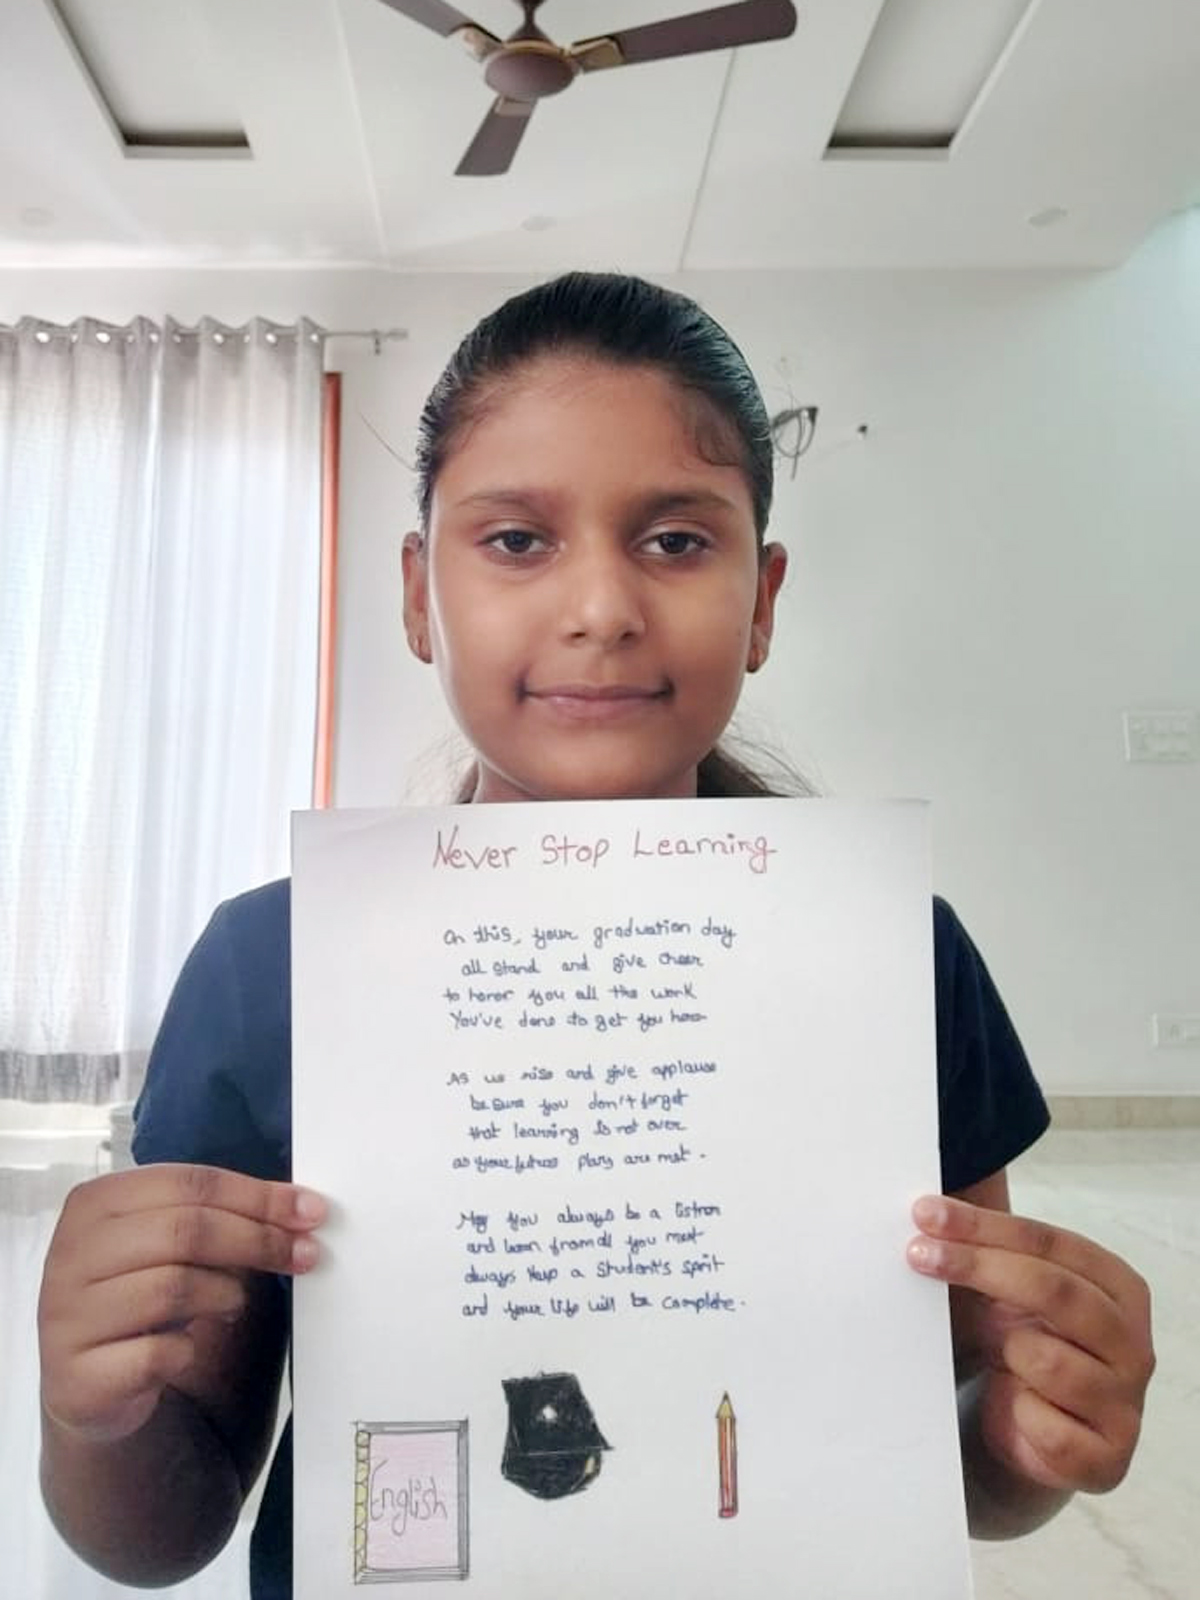 Never Stop Learning
On this, your graduation day
all stand and give cheer
to honor you all the work
You've done to get you here
As we rise and give applause
be sure you don't forget
that learning is not over
as your future plans are met.
May you always be a listner
and learn from all you meet
always keep a student's sprit
and your life will be complete.
English